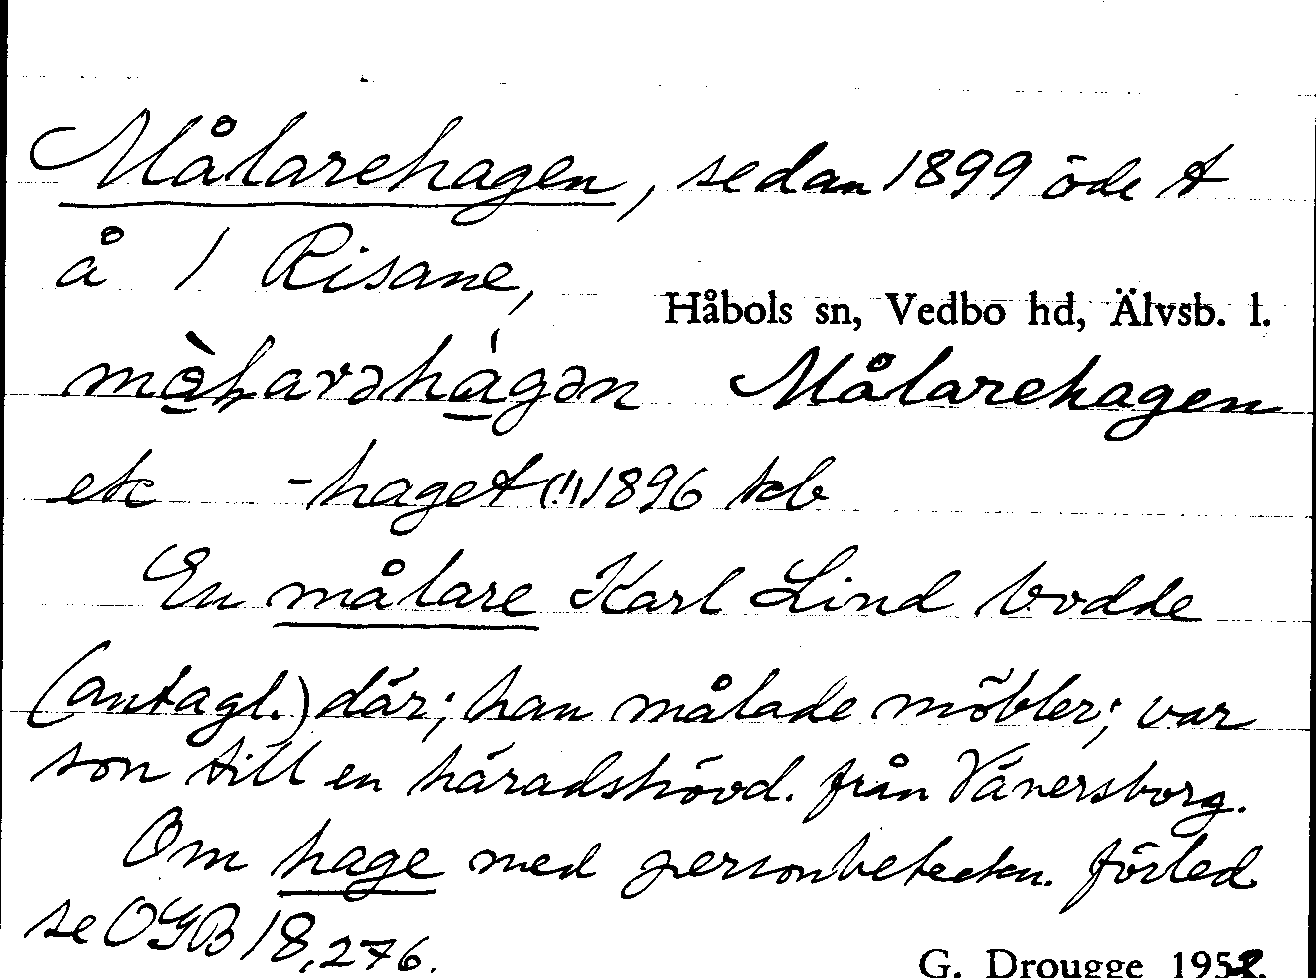 Målarehagen, sedan 1899 öde t
å 1 Risane,
Håbols sn, Vedbo hd, Älvsb. l.
Målarehagen
etc -haget (!) 1896 kb
En målare Karl Lind bodde
(antagl.) där; han målade möbler; var
son till en häradshövd. från Vänersborg.
Om hage med personbeteckn. förled
se OGB 18, 276.
G. Drougge 1952.